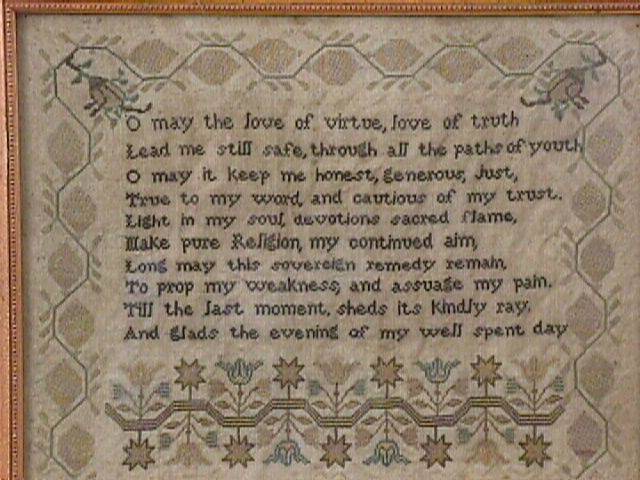 O may the love of virtue, love of truth
Lead me still safe, through all the paths of youth
O may it keep me honest, generous, Just,
True to my word, and cautious of my trust.
Light in my soul, devotions sacred flame,
Make pure Religion, my continued aim,
Long may this sovereign remedy remain,
To prop my weakness, and assuage my pain.
Till the last moment, sheds its kindly ray,
And glads the evening of my well spent day